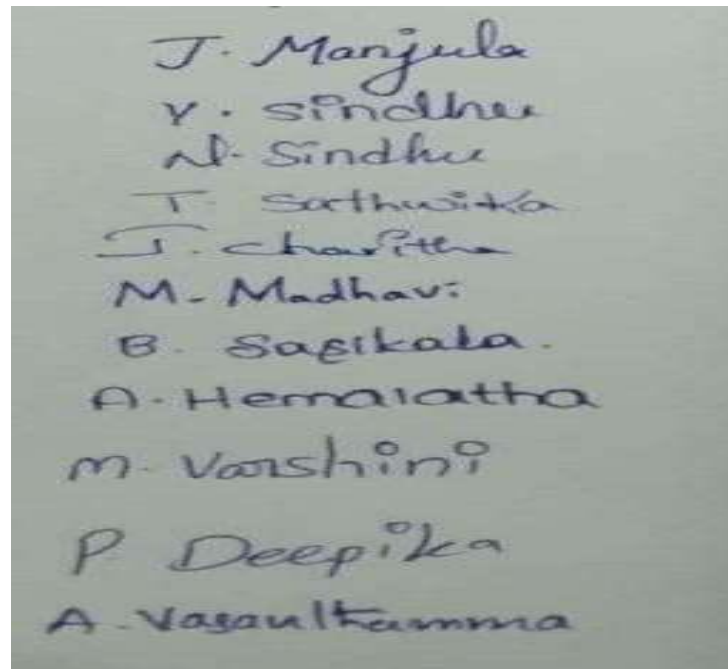 J. Manjula
Y. Sindhu
N. Sindhu
T. Sathwika
J. Charitha
M. Madhavi
B. Sasikala.
A. Hemalatha
M. Varshini
P Deepika
A.